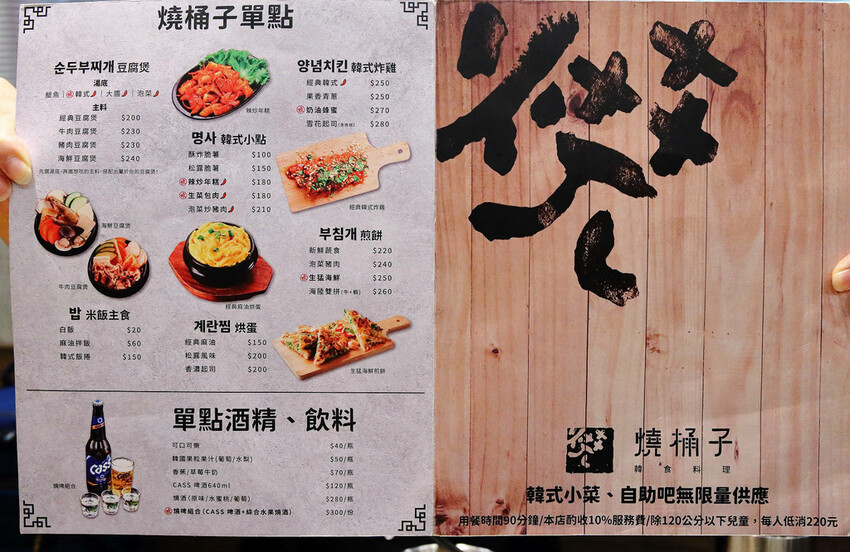 燒桶子單點
순두부찌개 豆腐煲
湯底
鯷魚｜韓式｜大醬｜泡菜
主料
經典豆腐煲 $200
牛肉豆腐煲 $230
豬肉豆腐煲 $230
海鮮豆腐煲 $240
先選湯底，再選想吃的主料，搭配出屬於你的豆腐煲！
海鮮豆腐煲
牛肉豆腐煲
밥 米飯主食
白飯 $20
麻油拌飯 $60
韓式飯捲 $150
辣炒年糕
명사 韓式小點
酥炸脆薯 $100
松露脆薯 $150
辣炒年糕 $180
生菜包肉 $180
泡菜炒豬肉 $210
經典麻油烘蛋
계란찜 烘蛋
經典麻油 $150
松露風味 $200
香濃起司 $200
양념치킨 韓式炸雞
經典韓式 $250
果香青蔥 $250
奶油蜂蜜 $270
雪花起司 $280
經典韓式炸雞
부침개 煎餅
新鮮蔬食 $220
泡菜豬肉 $240
生猛海鮮 $250
海陸雙拼(牛+蝦) $260
生猛海鮮煎餅
單點酒精、飲料
可口可樂 $40/瓶
韓國果粒果汁(葡萄/水梨) $50/瓶
香蕉/草莓牛奶 $70/瓶
CASS 啤酒640ml $120/瓶
燒酒(原味/水蜜桃/葡萄) $280/瓶
燒啤組合(CASS 啤酒+綜合水果燒酒) $300/份
燒啤組合
Cass
燒桶子
韓食料理
韓式小菜、自助吧無限量供應
用餐時間90分鐘/本店酌收10%服務費/除120公分以下兒童，每人低消220元